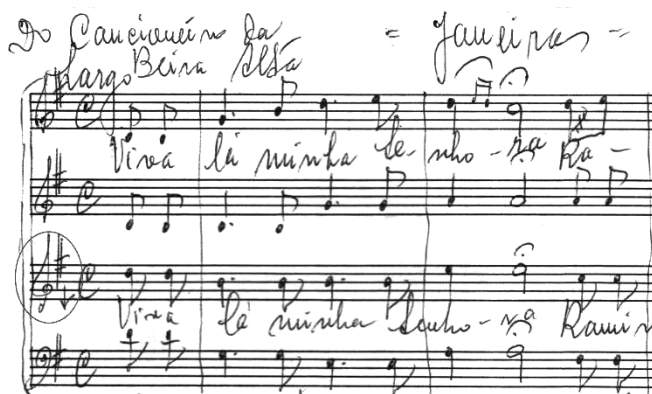 Do Cancioneiro da = Janeiras =
Largo Beira Alta
Viva lá minha Se-nho-ra Ra-
Viva lá minha Senho-ra Ramin